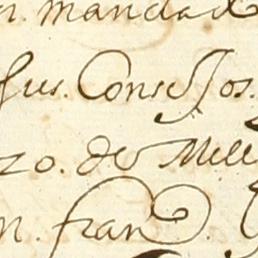 n. mandad
sus. ConseJos.
zo. de Mill
n. fran^co.